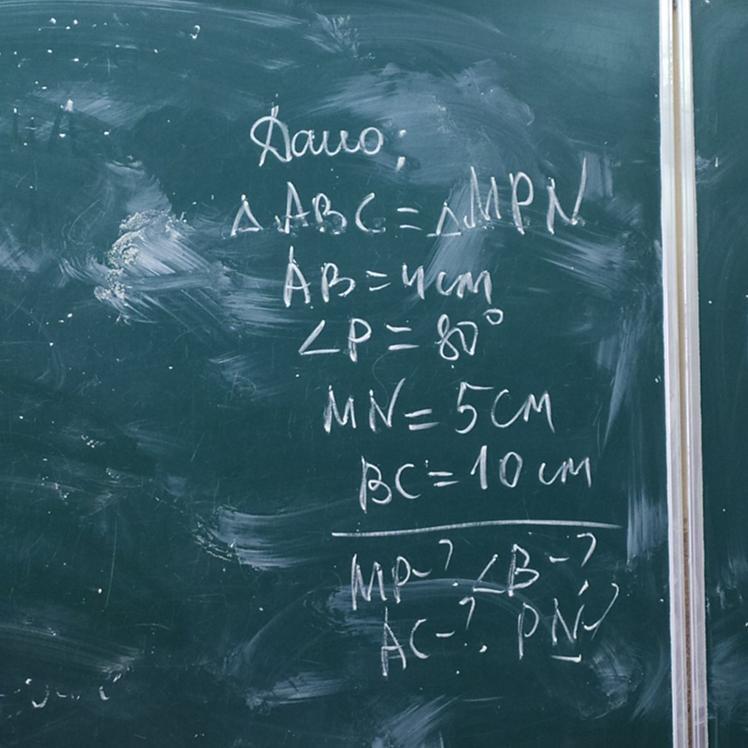 Дано:
△ABC = △MPN
AB = 4 см
∠P = 80°
MN = 5 см
BC = 10 см
MP-? ∠B-?
AC-?. PN-?